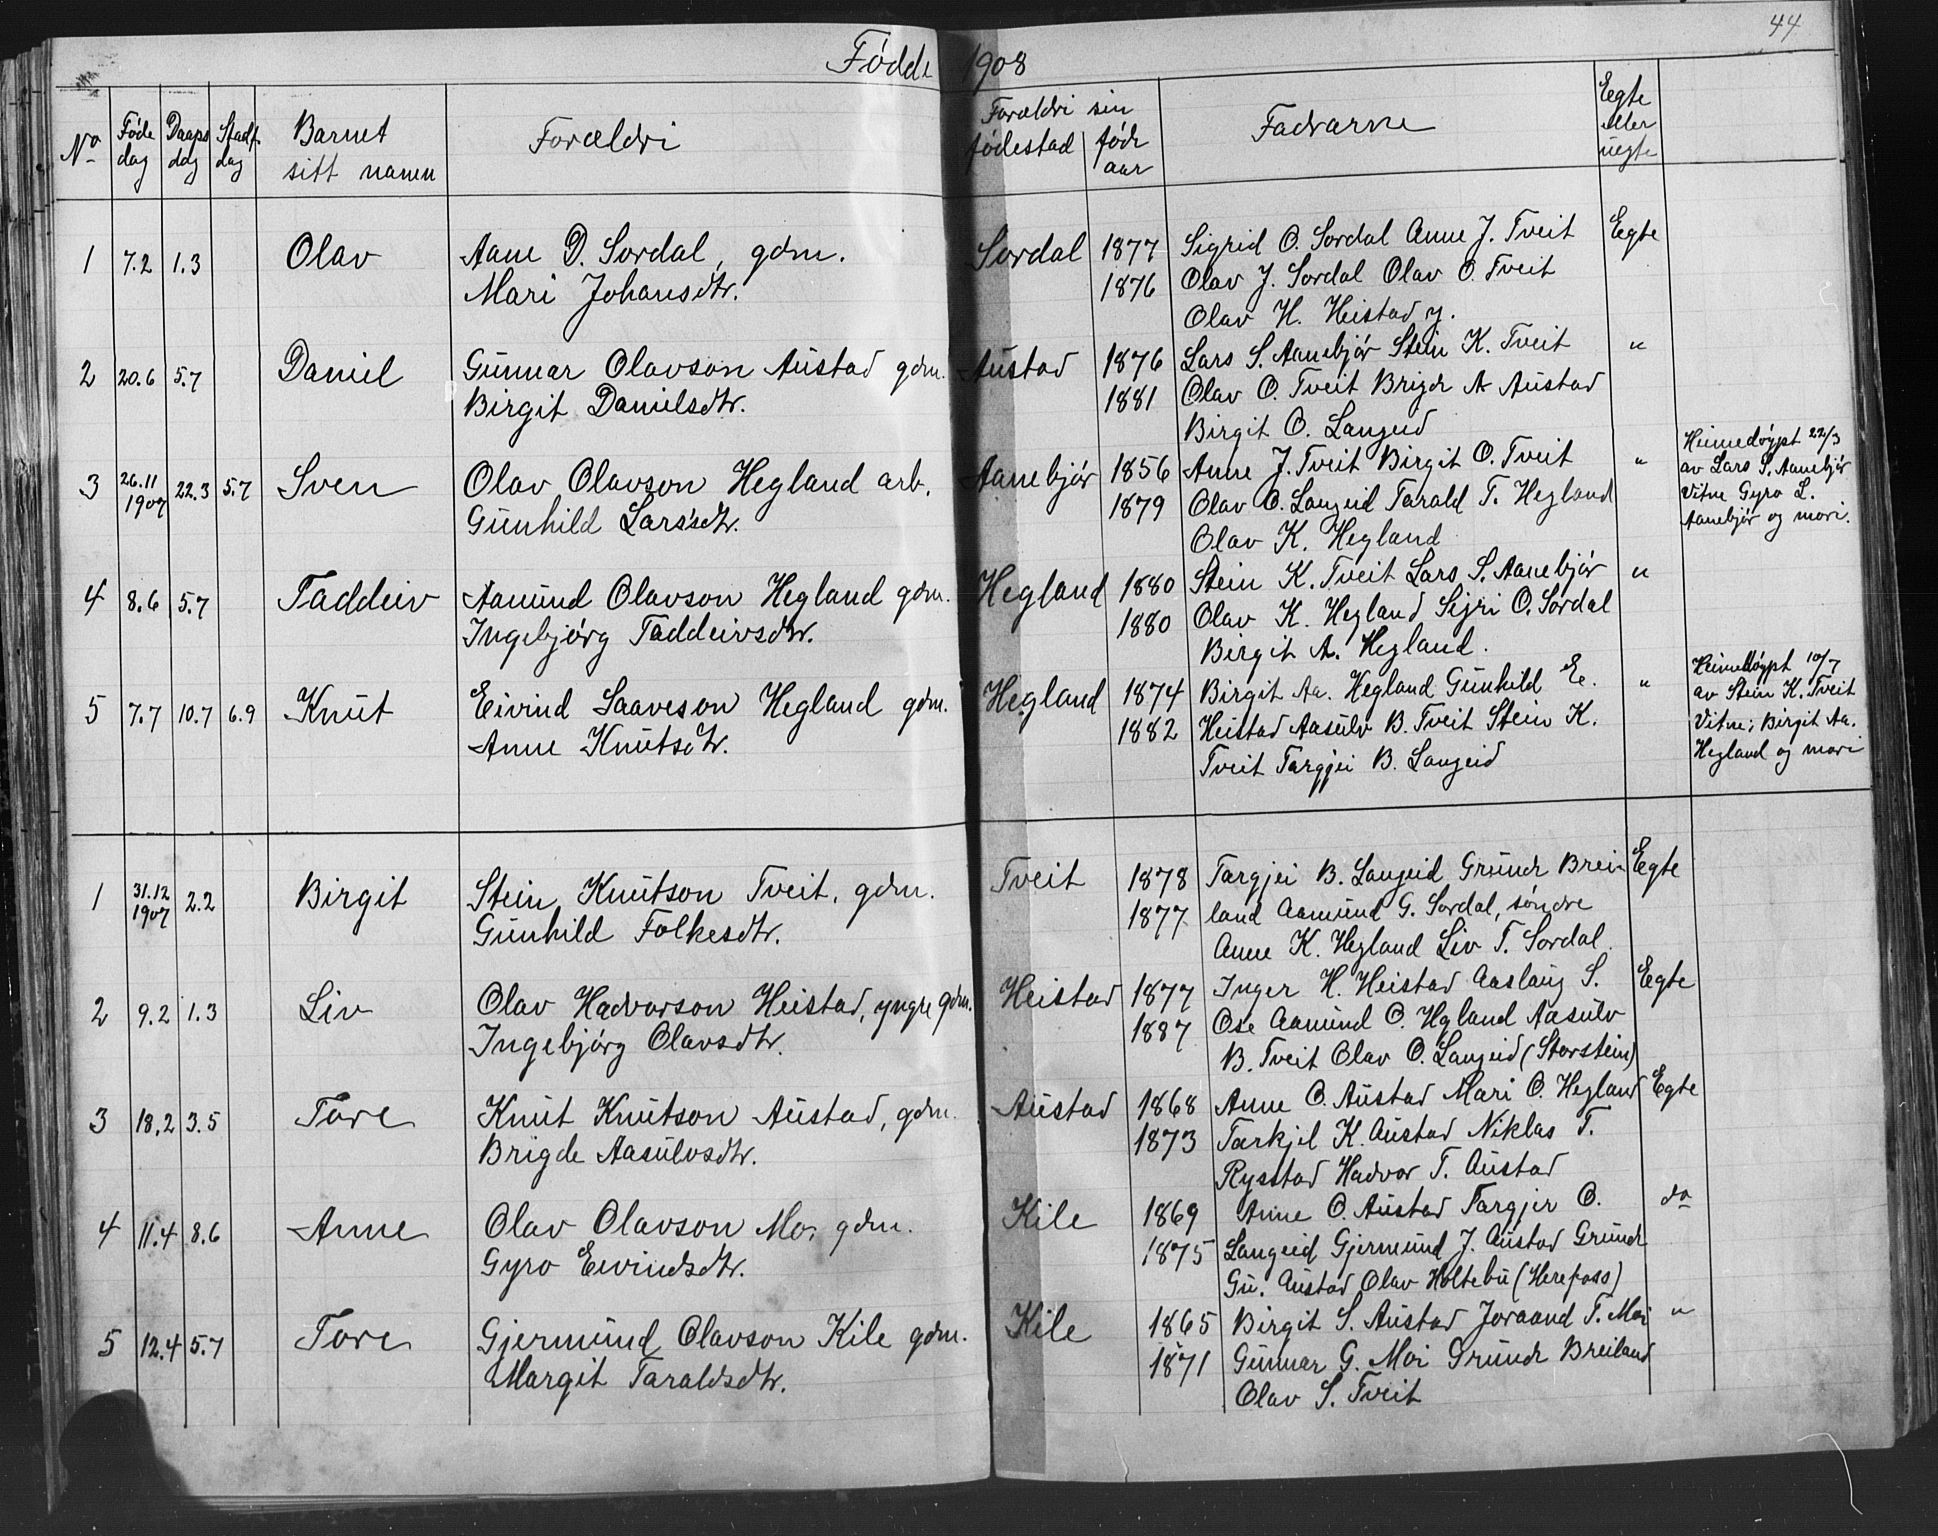 44
Fødde 1908
No Føde dag Daaps dag Stadf. dag Barnet sitt namn Forældri Forældri sin fødestad fødr aar Fadrarne Egte eller uegte
1 7.2 1.3 Olav Aane D. Sordal, gdm. Sordal 1877 Sigrid O. Sordal Anne J. Tveit Egte
Mari Johansdtr. 1876 Olav J. Sordal Olav O. Tveit
Olav H. Heistad y.
2 20.6 5.7 Daniel Gunnar Olavson Austad gdm. Austad 1876 Lars S. Aanebjør Stein K. Tveit "
Birgit Danielsdtr. 1881 Olav O. Tveit Brigdr A Austad
Birgit O. Langeid
3 26.11 1907 22.3 5.7 Sven Olav Olavson Hegland arb. Aanebjør 1856 Anne J. Tveit Birgit O. Tveit " Heimedøypt 22/3
Gunhild Larsdtr. 1879 Olav O. Langeid Tarald T. Hegland av Lars S. Aanebjør
Olav K. Hegland Vitne Gyro L.
Aanebjør og mori.
4 8.6 5.7 Taddeiv Aamund Olavson Hegland gdm. Hegland 1880 Stein K. Tveit Lars S. Aanebjør "
Ingebjørg Taddeivsdtr. 1880 Olav K. Hegland Sigri O. Sordal
Birgit A. Hegland.
5 7.7 10.7 6.9 Knut Eivind Saaveson Hegland gdm. Hegland 1874 Birgit Aa. Hegland Gunhild E. " Heimedøypt 10/7
Anne Knutsdtr. 1882 Heistad Aasulv B. Tveit Stein K. av Stein K. Tveit
Tveit Targjei B. Langeid Vitne; Birgit Aa.
Hegland og mori
1 31.12 1907 2.2 Birgit Stein Knutson Tveit, gdm. Tveit 1878 Targjei B. Langeid Grundr Brei Egte
Gunhild Folkesdtr. 1877 land Aamund G. Sordal, søndre
Anne K. Hegland Liv T. Sordal.
2 9.2 1.3 Liv Olav Hadvarson Heistad, yngre gdm. Heistad 1877 Inger H. Heistad Aaslaug S. Egte
Ingebjørg Olavsdtr. 1887 Ose Aamund O. Hgland Aasulv
B. Tveit Olav O. Langeid (Storstein)
3 18.2 3.5 Tore Knut Knutson Austad, gdm. Austad 1868 Anne O. Austad Mari O. Hegland Egte
Brigde Aasulvsdtr. 1873 Tarkjel K. Austad Niklas T.
Rysstad Hadvor T. Austad
4 11.4 8.6 Anne Olav Olavson Mo, gdm. Kile 1869 Anne O. Austad Targjer O. do
Gyro Eivindsdtr. 1875 Langeid Gjermund J. Austad Grundr
Gu. Austad Olav Holtebu (Herefoss)
5 12.4 5.7 Tore Gjermund Olavson Kile gdm. Kile 1865 Birgit S. Austad Joraand T. Moi "
Margit Taraldsdtr. 1871 Gunnar G. Moi Grundr Breiland
Olav S. Tveit